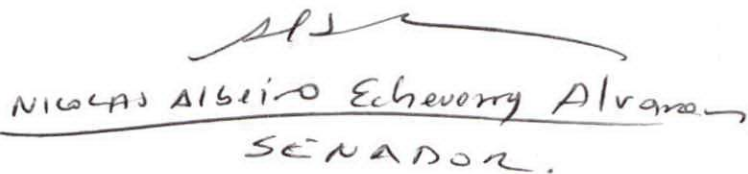 Nicolas Albeiro Echeverry Alvaran
SENADOR.